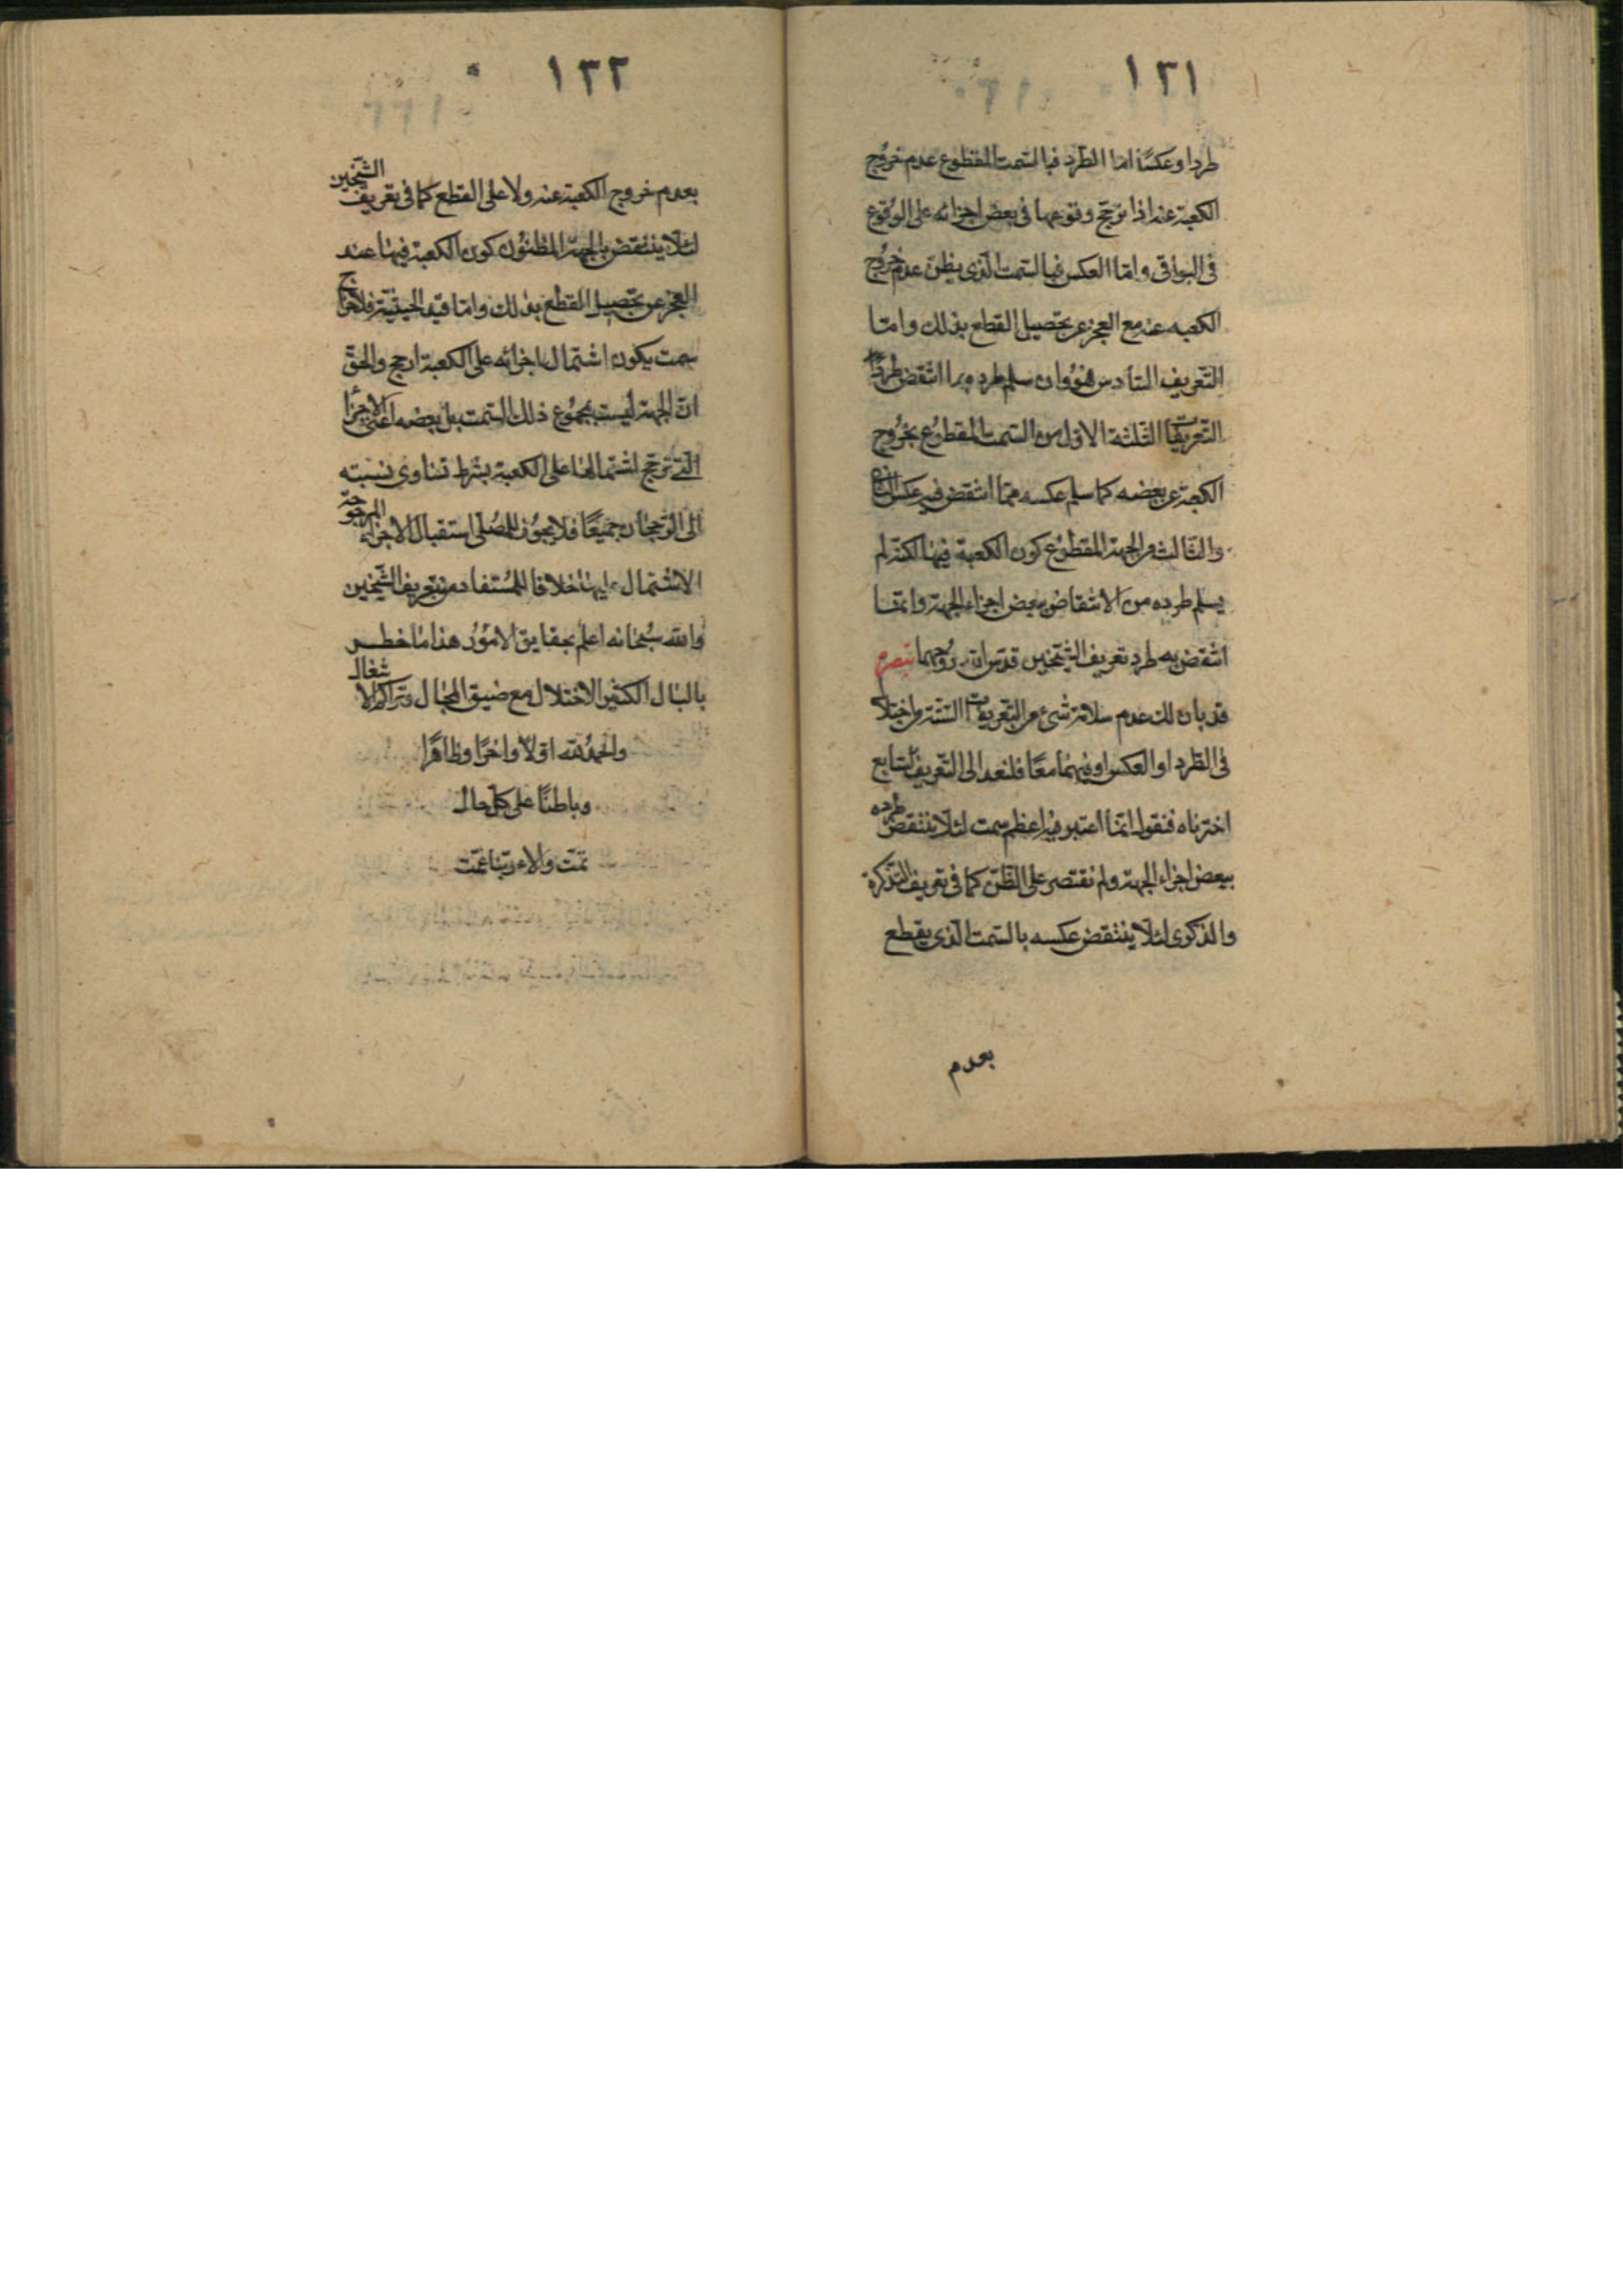 ١٢١
طردا وعكسًا اما الطرد فبالسّمت المقطوع عدم خروج
الكعبة عنه اذا ترجّح وقوعها في بعض اجزائه على الوقوع
في البواقي وامّا العكس فبالسّمت الّذي يظنّ عدم خروج
الكعبه عنه مع العجز عن تحصيل القطع بذلك وامّا
التّعريف السّادس فهو وان سلم طرده بما انتقض طردًا
التّعريفات الثّلثة الاول من السّمت المقطوع بخروج
الكعبة عن بعضه كما سلم عكسه ممّا انتقض فيه عكس
والثّالث من الجهة المقطوع كون الكعبة فيها لكنّه لم
يسلم طرده من الانتقاض ببعض اجزاء الجهة وامّا
انتقض به طرد تعريف الشّيخين قدّس الله روحهما تبصرة
قد بان لك عدم سلامة شيء من التّعريفات السّتّة من اختلال
في الطّرد او العكس او فيهما معًا فلنعد الى التّعريف السّابع
اخترناه فنقول انّما اعتبر فيه اعظم سمت لئلّا ينتقض طرده
ببعض اجزاء الجهة ولم نقتصر على الظّنّ كما في تعريف التّذكرة
والذكرى لئلّا ينتقض عكسه بالسّمت الّذي يقطع
بعدم
١٢٢
بعدم خروج الكعبة عنه ولا على القطع كما في تعريف الشّيخين
لئلّا ينتقض بالجهة المظنون كون الكعبة فيها عند
العجز عن تحصيل القطع بذلك وامّا قيد الحيثيّة فلاخراج
سمت يكون اشتمال اجزائه على الكعبة ارجح والحقّ
انّ الجهة ليست مجموع ذلك السّمت بل بعضه اعني الاجزاء
الّتي ترجّح اشتمالها على الكعبة بشرط تساوي نسبته
الى الرّجحان جميعًا فلا يجوز للمصلّي استقبال الاجزاء المرجوحة
الاشتمال عليها خلافا للمستفاد من تعريف الشّيخين
والله سبحانه اعلم بحقايق الامور هذا ما خطر
بالبال الكثير الاختلال مع ضيق المجال وتراكم الاشغال
والحمد لله اوّلًا واخرًا وظاهرًا
وباطنًا على كلّ حال
تمّت والاء ربّنا عمّت